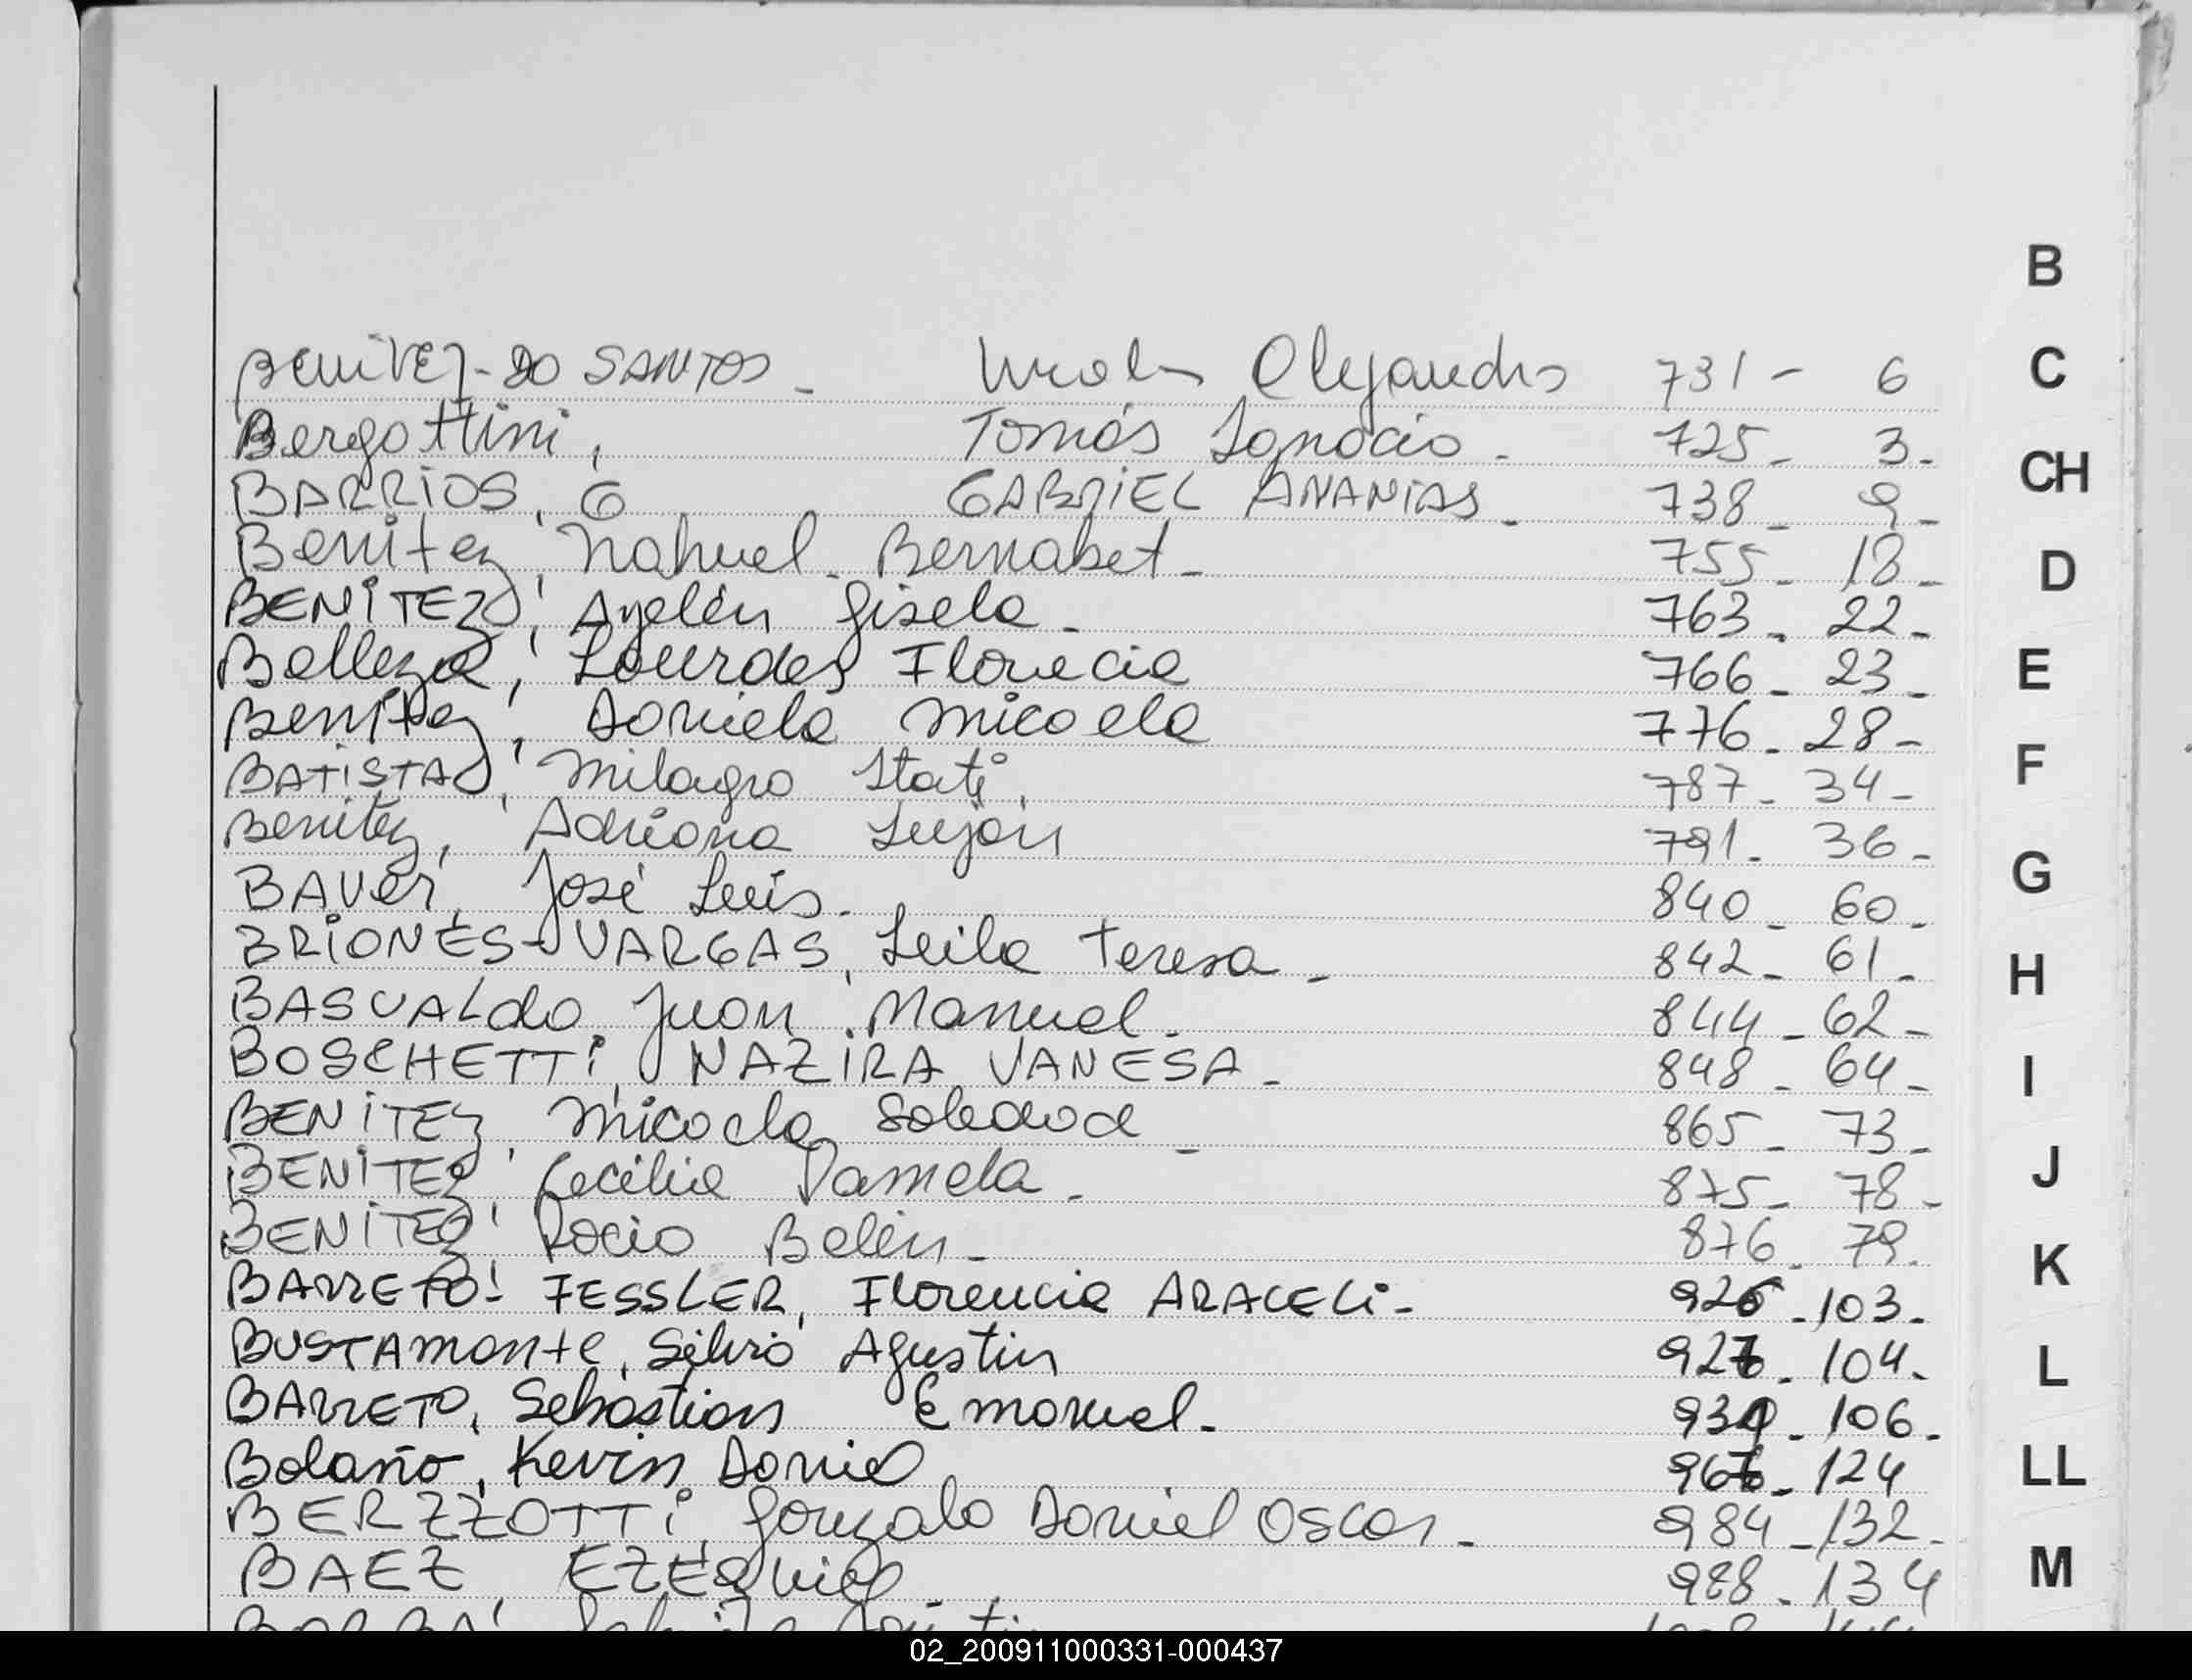 B
C
CH
D
E
F
G
H
I
J
K
L
LL
M
BENITEZ-DO SANTOS - Nicolás Alejandro 731 - 6
Bergottini, Tomás Ignacio - 725 - 3 -
BARRIOS, G GABRIEL ANANIAS - 738 - 9 -
Benitez, Nahuel Bernabet - 755 - 18 -
BENITEZ, Ayelén Gisela - 763 - 22 -
Belleza, Lourdes Florecia 766 - 23 -
Benítez, Daniela Micaela 776 - 28 -
BATISTA, Milagro Itatí, 787 - 34 -
Benitez, Adriana Luján 791 - 36 -
BAUer, José Luis - 840 - 60 -
BRIONES-VARGAS, Leila Teresa - 842 - 61 -
BASUALdo, Juan Manuel - 844 - 62 -
BOSCHETTi, NAZiRA VANESA - 848 - 64 -
BENITEZ, Micaela Soledad - 865 - 73 -
BENITEZ, Cecilia Pamela - 875 - 78 -
BENITEZ, Rocio Belén - 876 - 79 -
BARRETO - FESSLER, Florencia ARACELi - 926 - 103 -
BUSTAMante, Silvio Agustin 927 - 104 -
BARRETO, Sebastian Emanuel - 106 -
Bolaño, Kevin Daniel - 124
BERZZOTTi, Gonzalo Daniel Oscar - 984 - 132 -
BAEZ, EZEQuiel - 988 - 134
02_200911000331-000437